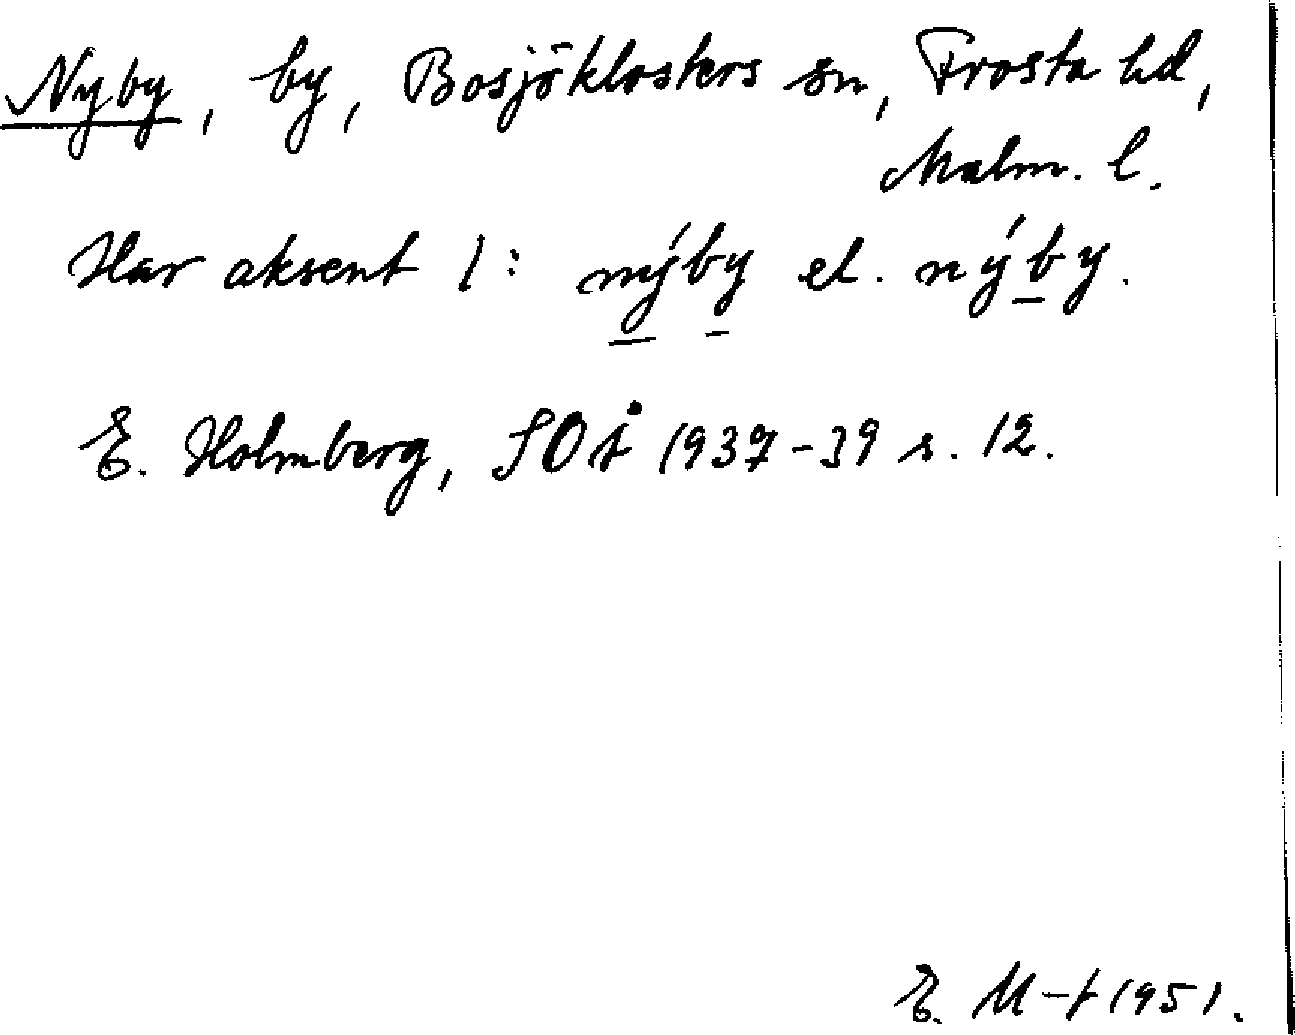 Nyby, by, Bosjöklosters sn, Frosta hd,
Malm. l.
Har aksent 1: nýby el. nýby.
E. Holmberg, SOÅ 1937-39 s. 12.
E. M-t 1951.